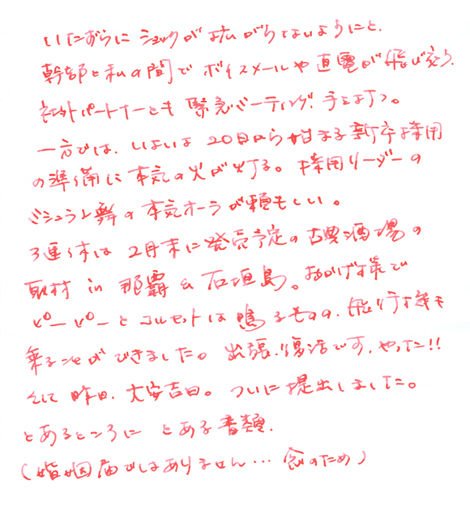 いたずらにショックが拡がらないようにと、
幹部と私の間でボイスメールや直電が飛び交う。
社外パートナーとも緊急ミーティング
一方では、いよいよ20日から始まる新卒採用
の準備に本気の火が灯る。採用リーダーの
ミシュラン舞の本気オーラが頼もしい。
3連休は2月末に発売予定の古典酒場の
取材 in 那覇 & 石垣島。おかげ様で
ピーピーとコルセットは鳴るものの、飛行機も
乗ることができました。出張、復活です、やった!!
そして昨日、大安吉日。ついに提出しました。
とあるところに とある書類、
(婚姻届ではありません… 念のため)